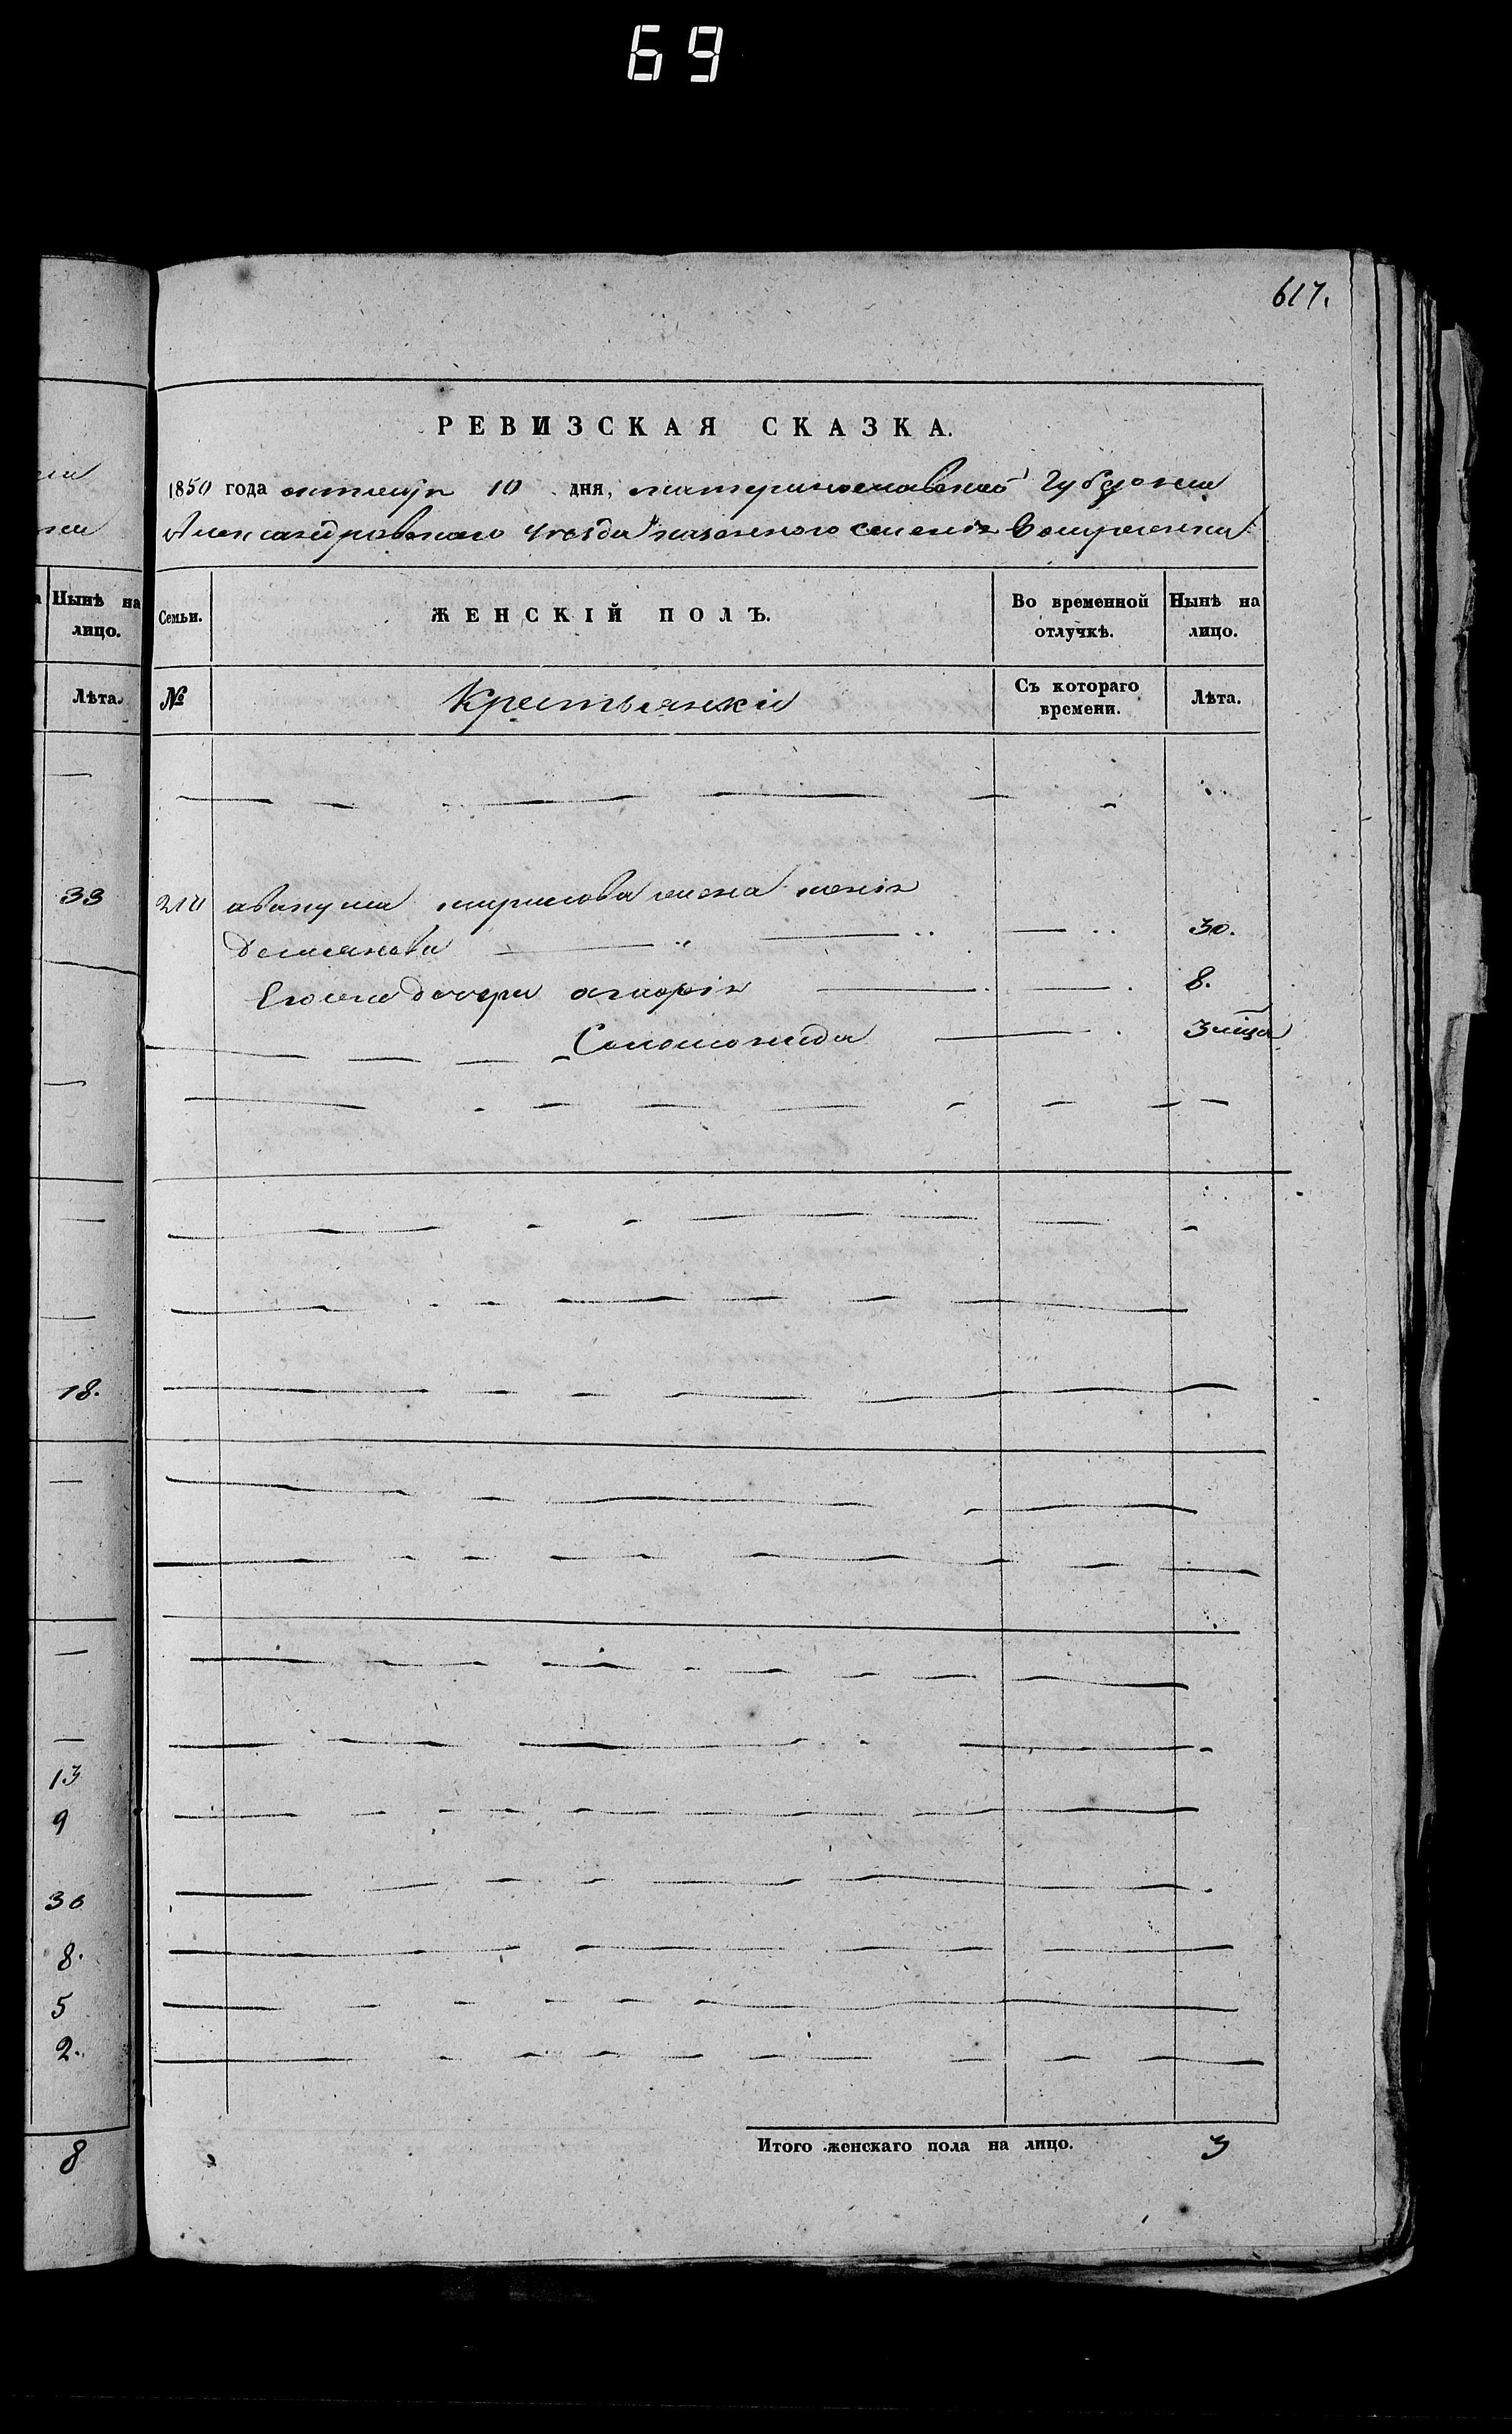 69
617.
РЕВИЗСКАЯ СКАЗКА.
1850 года октября 10 дня, екатеринославской Губернии
Александровского уезда казенного селения
Нынѣ на лицо.
Семьи.
ЖЕНСКІЙ ПОЛЪ.
Во временной отлучкѣ.
Нынѣ на лицо.
Лѣта.
№
Крестьянки
Съ котораго времени.
Лѣта.
33
210 авакума кирилова жена ксенія
Демянова 30.
Его же дочери агафія 8.
Соломонида 3 мца
18.
13
9
30
8.
5
2.
8
Итого женскаго пола на лицо. 3